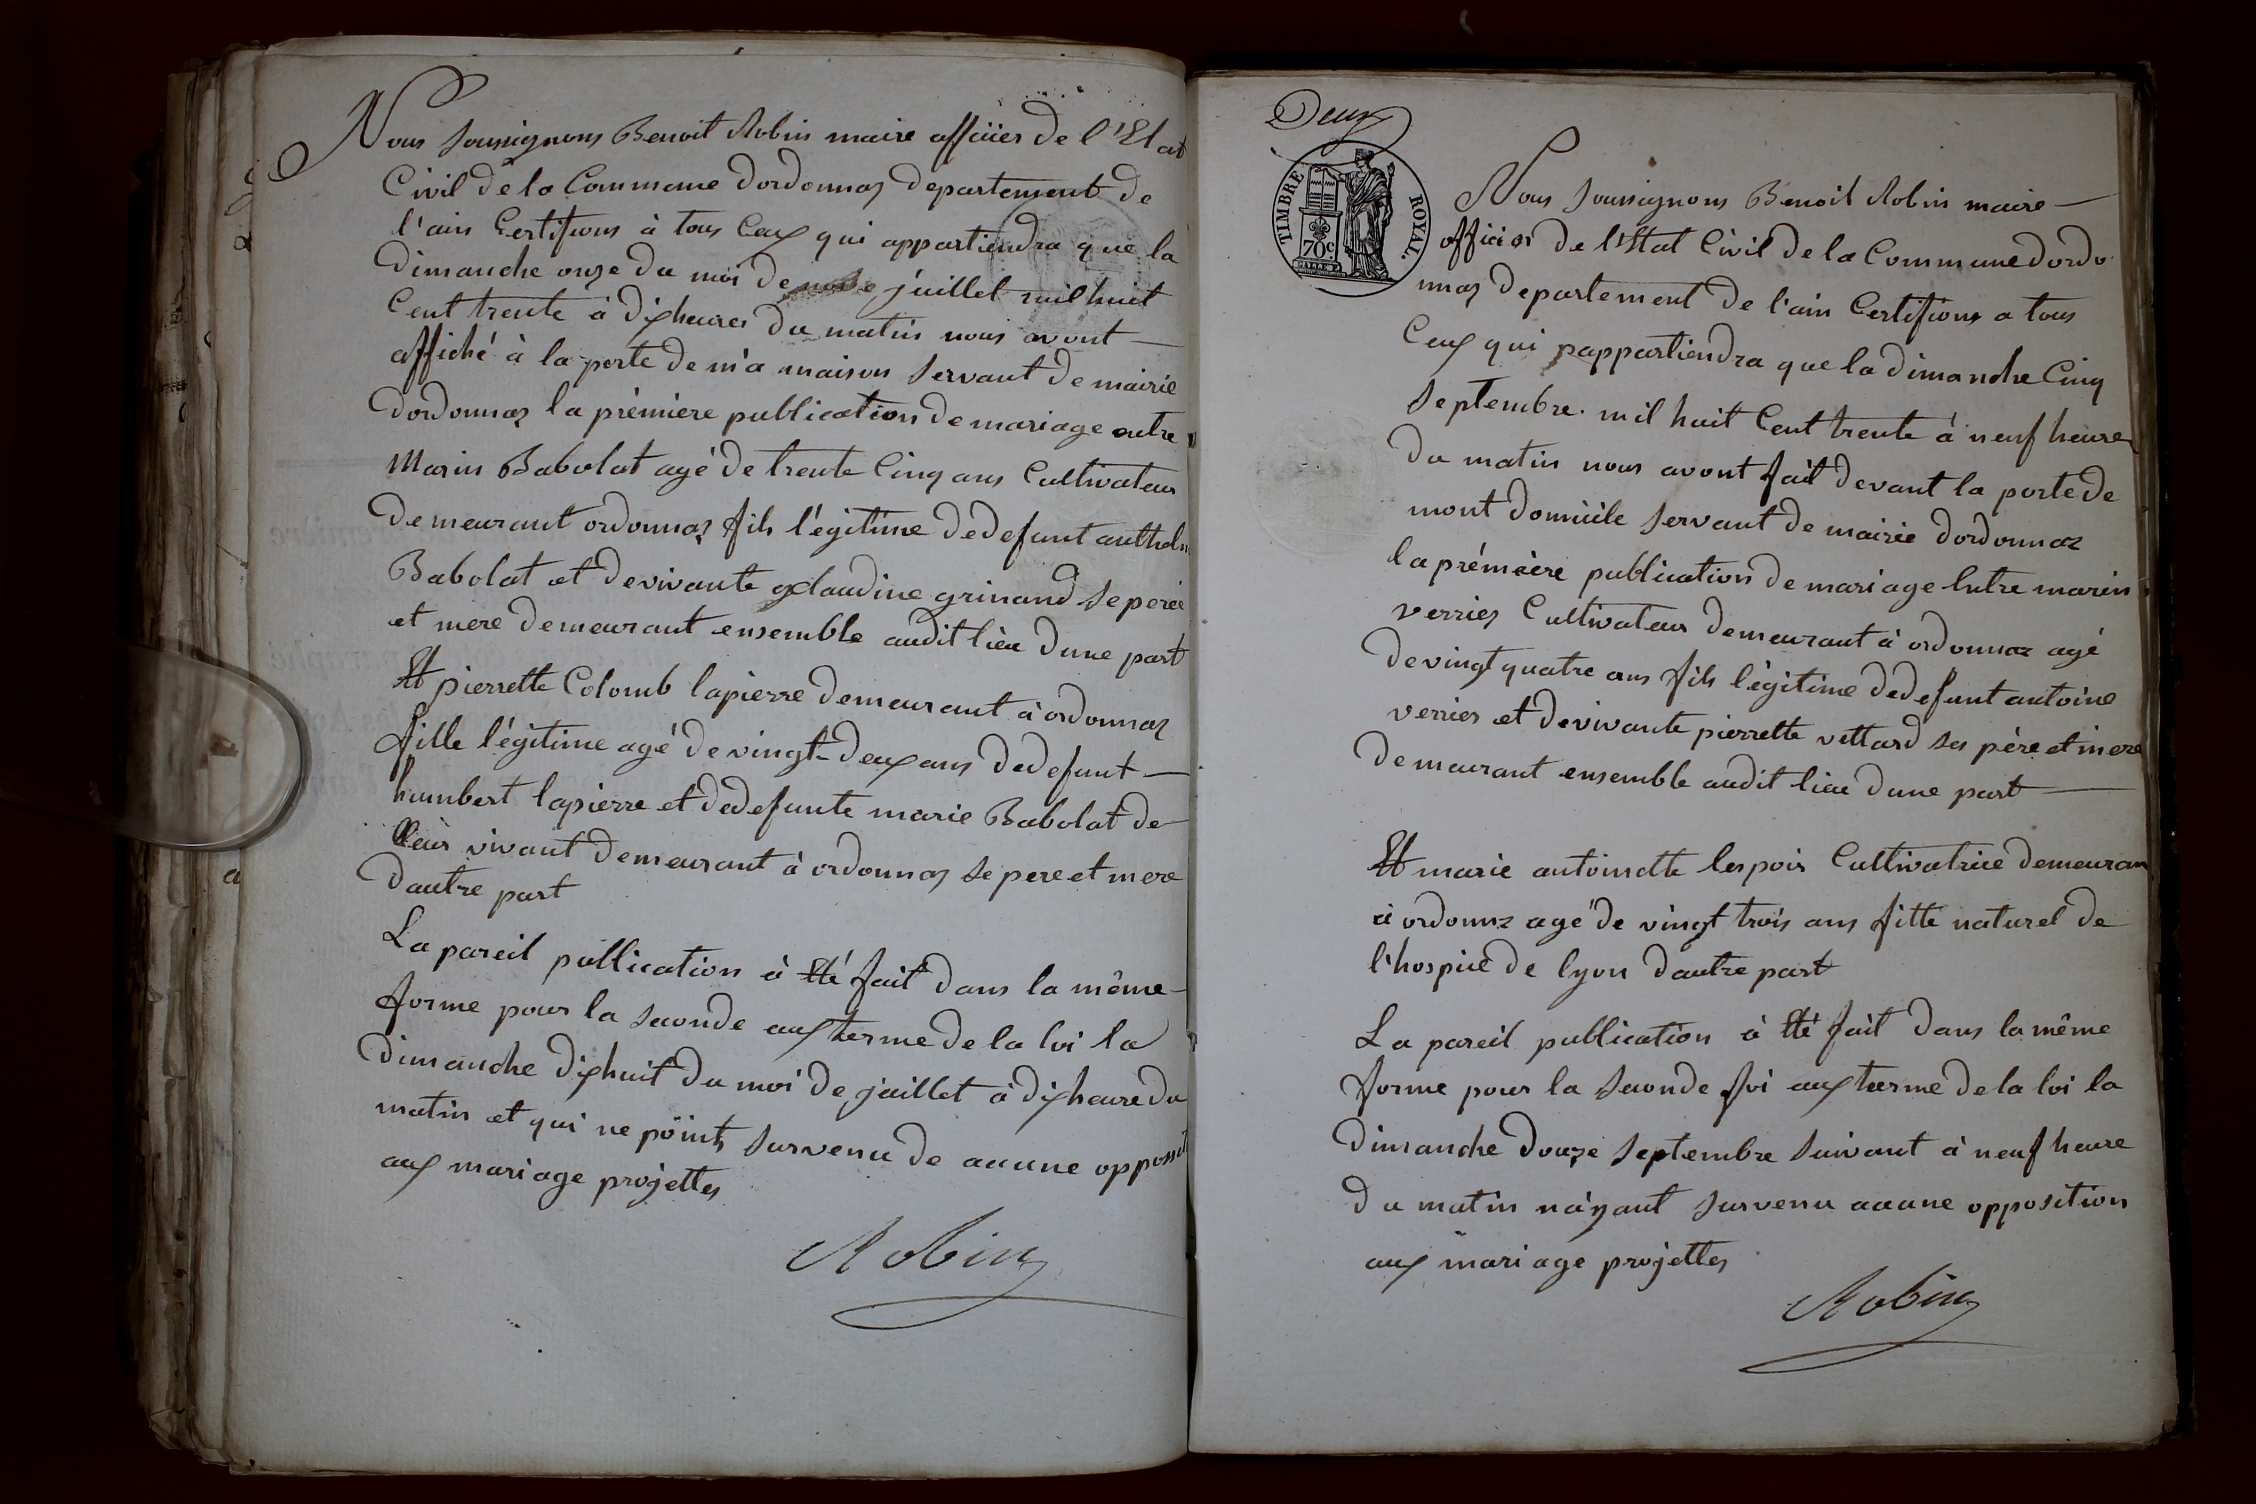 Nous soussignons Benoit Robin maire officier de l'Etat
Civil de la Commune dordonnaz departement de
l'ain Certifions à tous Ceux qui appartiendra que la
dimanche onze du moi de juillet mil huit
Cent trente à dix heures du matin nous avont
affiché à la porte de m'a maison servant de mairie
dordonnaz la prémiere publication de mariage entre
Marin Babolat agé de trente Cinq ans Cultivateur
demeurant ordonnaz fils légitime de defunt anthelm
Babolat et de vivante claudine grinand se perée
et mere demeurant ensemble audit lieu dune part
Et pierrette Colomb lapierre demeurant à ordonnaz
fille légitime agé de vingt-deux ans de defunt
humbert lapierre et de defunte marie Babolat de
leur vivant demeurant à ordonnaz se pere et mere
dautre part
La pareil publication à Eté fait dans la même
forme pour la seconde aux terme de la loi la
dimanche dix huit du moi de juillet à dix heure du
matin et qui ne points survenu de aucune oppossit
aux mariage projettes
Robin
Deux
TIMBRE ROYAL.
70c.
Nous soussignons Benoit Robin maire
officier de l'Etat Civil de la Commune dordo
nnaz departement de l'ain Certifions a tous
Ceux qui appartiendra que la dimanche Cinq
septembre. mil huit Cent trente à neuf heure
du matin nous avont fait devant la porte de
mont domicile servant de mairie dordonnaz
la prémière publication de mariage Entre marin
verrier Cultivateur demeurant à ordonnaz agé
de vingt quatre ans fils légitime de defunt antoine
verrier et de vivante pierrette vettard ses père et mere
demeurant ensemble audit lieu dune part
Et marie antoinette lespoir Cultivatrice demeuran
à ordonnz agé de vingt trois ans fille naturel de
l'hospice de lyon dautre part
La pareil publication à Eté fait dans la même
forme pour la seconde foi aux terme de la loi la
dimanche douze septembre suivant à neuf heure
du matin nàyant survenu aucune opposition
aux mariage projettes
Robin